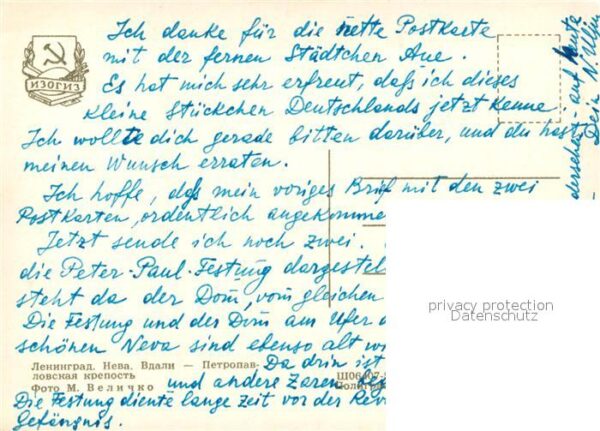 ИЗОГИЗ
Ich danke für die nette Postkarte
mit der fernen Städtchen Aue.
Es hat mich sehr erfreut, daß ich dieses
kleine Stückchen Deutschlands jetzt kenne.
Ich wollte dich gerade bitten darüber, und du hast
meinen Wunsch erraten.
Ich hoffe, daß mein voriges Brief mit den zwei
Postkarten, ordentlich angekomme
Jetzt sende ich noch zwei.
die Peter-Paul-Festung dargestel
steht da der Dom, vom gleichen
Die Festung und der Dom am Ufer
schönen Neva sind ebenso alt
Da drin ist
und andere Zaren
Die Festung diente lange Zeit vor der Rev
Gefängnis.
Ленинград. Нева. Вдали — Петропав-
ловская крепость
Фото М. Величко
auf Karte
Dein
privacy protection
Datenschutz